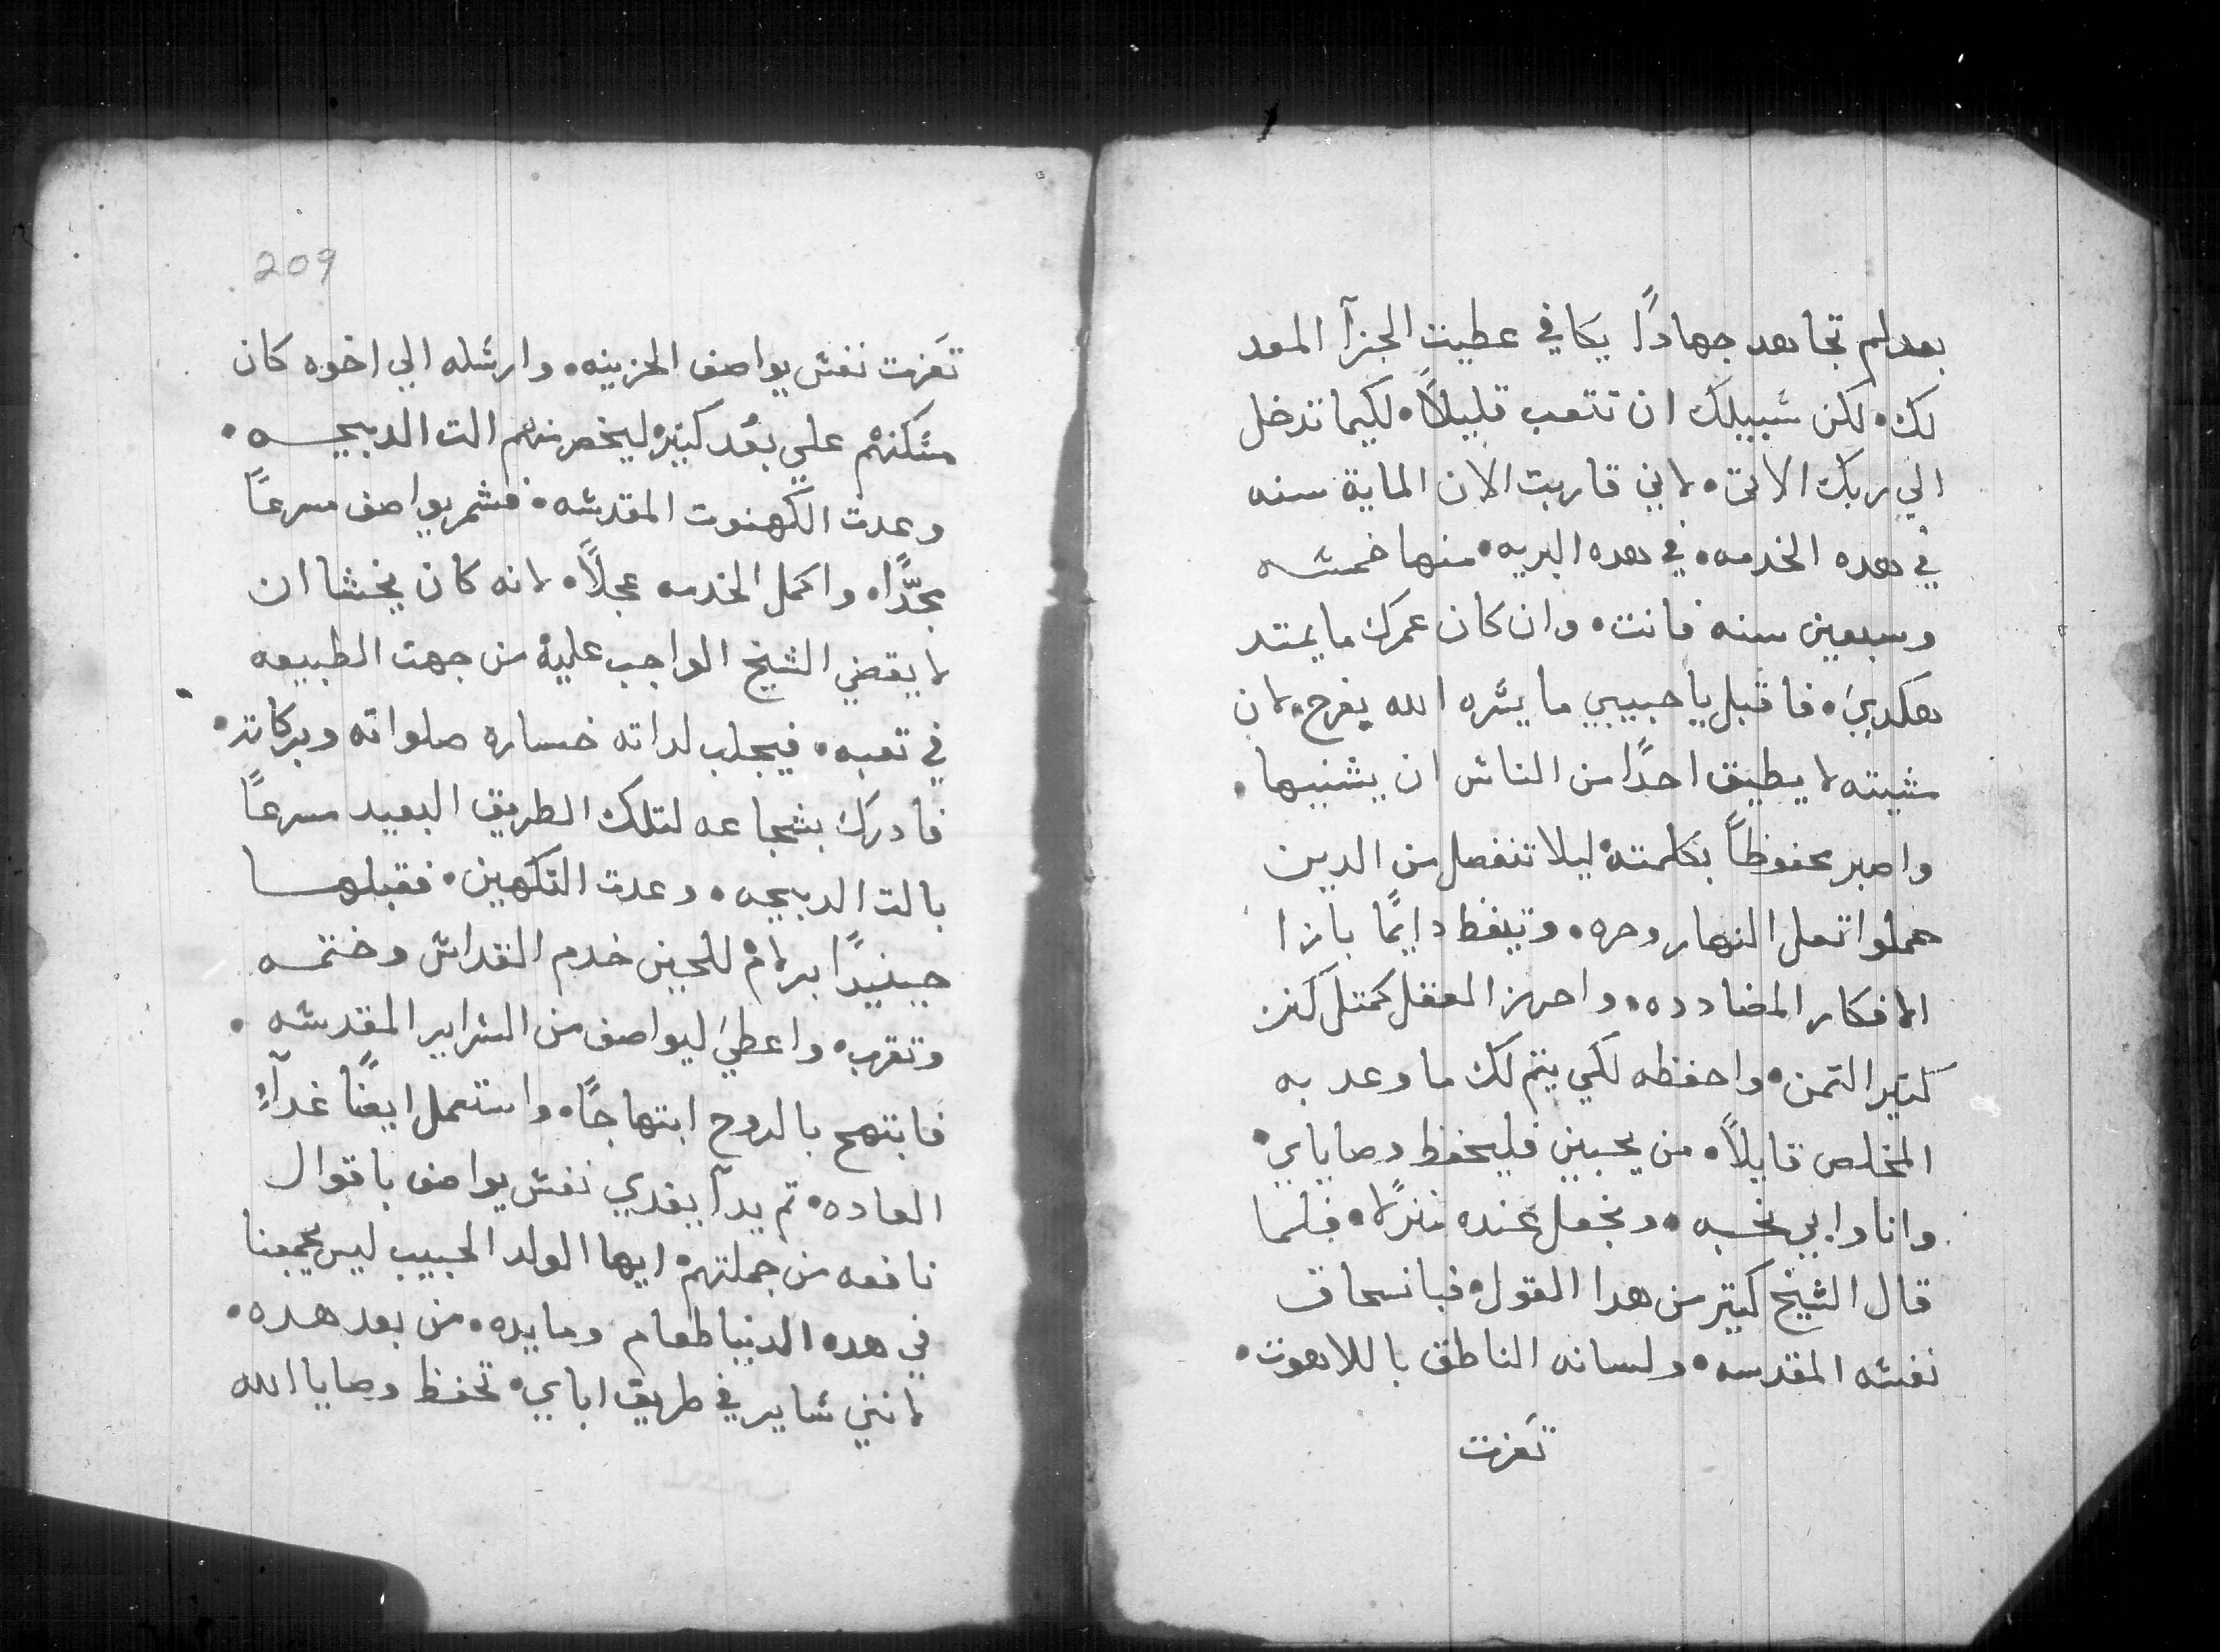 بعد لم تجاهد جهادًا يكافي عطيت الجزآ المعد
لك• لكن شبيلك ان تتعب قليلاً• لكيما تدخل
الي ربك الاتي• لاني قاربت الان الماية سنه
في هده الخدمه• في هده البريه• منها خمسه
وسبعين سنه فانت• وان كان عمرك ما يمتد
هكدي• فاقبل يا حبيبي ما يشره الله بفرح• لان
مشيته لا يطيق احدًا من الناس ان يشنيها•
واصبر محفوظاً بكلمته• ليلا تنفصل من الدين
حملوا تعل النهار وحره• وتيقظ دايمًا بازا
الافكار المضادده• واحرز العقل كمتل كنز
كتير التمن• واحفظه لكي يتم لك ما وعد به
المخلص قايلاً• من يحبني فليحفظ وصاياي•
وانا وابي نحبه• ونجعل عنده منزلا• فلما
قال الشيخ كتير من هدا القول• فبانسحاق
نفسه المقدسه• ولسانه الناطق باللاهوت•
تعزت
209
تعزت نفس يواصف الحزينه• وارسله الي اخوه كان
مسكنهم علي بعد كبير• ليحضر منهم الت الدبيحه•
وعدت الكهنوت المقدسه• فشمر يواصف مسرعاً
بجدًّا• واكمل الخدمه عجلاً• لانه كان يخشا ان
لا يقضي الشيخ الواجب عليه• من جهت الطبيعه
في تعبه• فيجلب لداته خساره صلواته وبركاته•
فادرك بشجاعه لتلك الطريق البعيد مسرعاً
بالت الدبيحه• وعدت التكهين• فقبلها
حينيدًا برلام• للحين خدم القداس وختمه
وتقرب• واعطي ليواصف من السراير المقدسه•
فابتهج بالروح ابتهاجًا• واستعمل ايضًا غدآءً
العاده• تم بدآ يغدي نفس يواصف باقوال
نافعه من جملتهم• ايها الولد الحبيب ليس يجمعنا
في هده الدنيا طعام ومايده• من بعد هده•
لانني ساير في طريق اباي• تحفظ وصايا الله